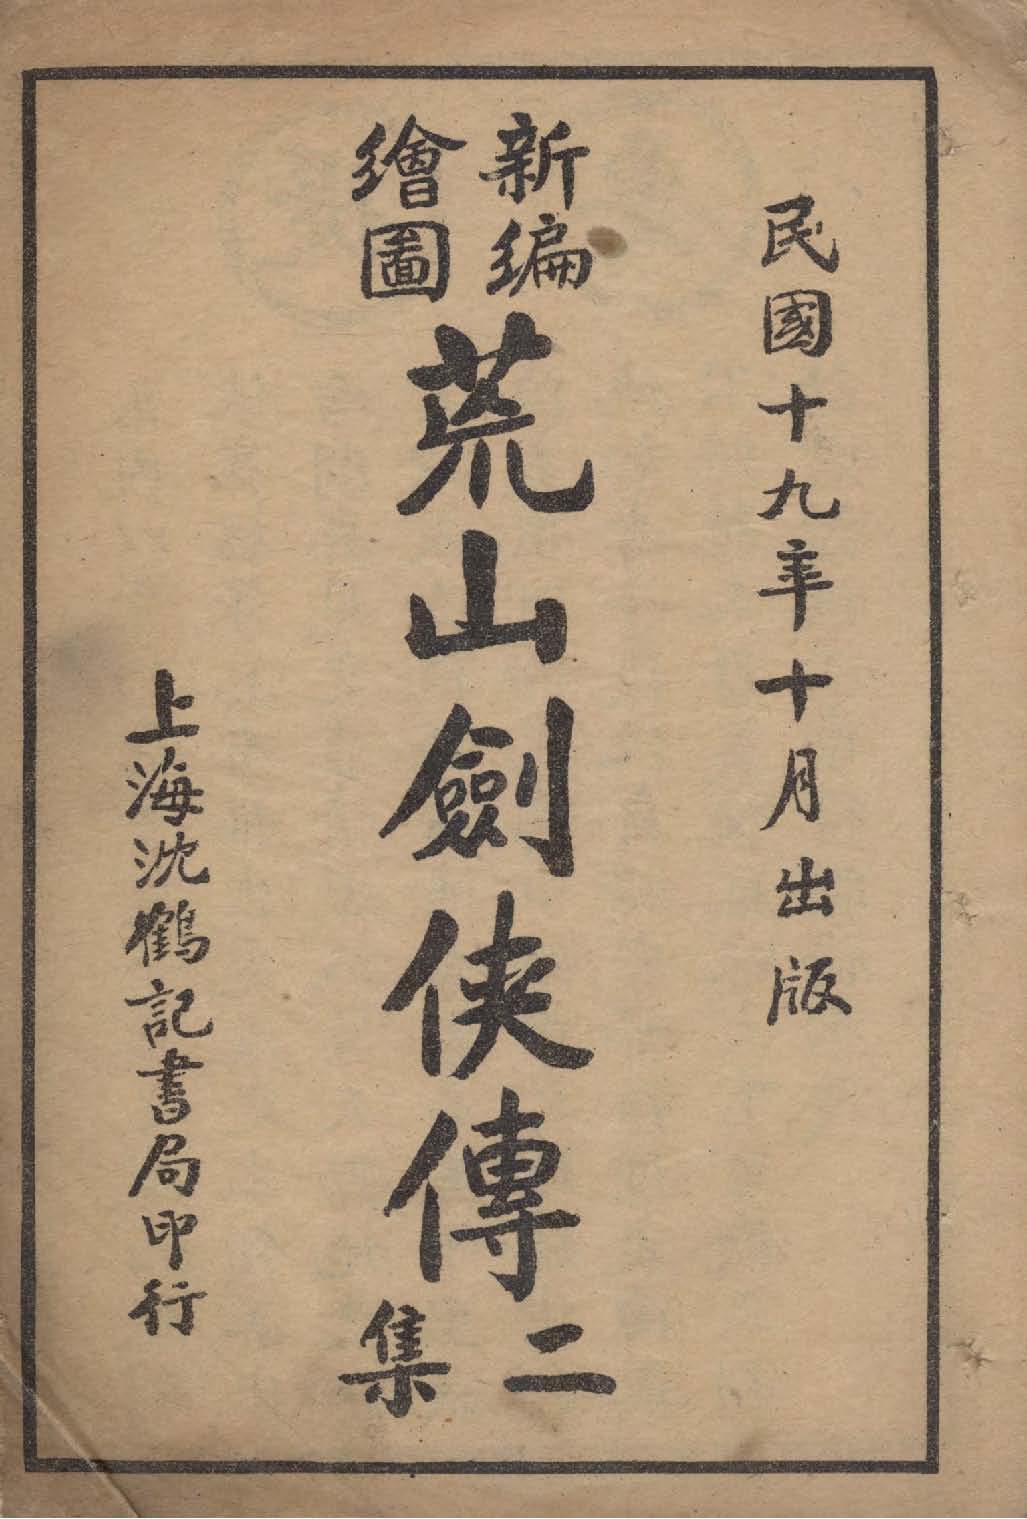 民國十九年十月出版
新編
繪圖
荒山劍俠傳
二
集
上海沈鶴記書局印行